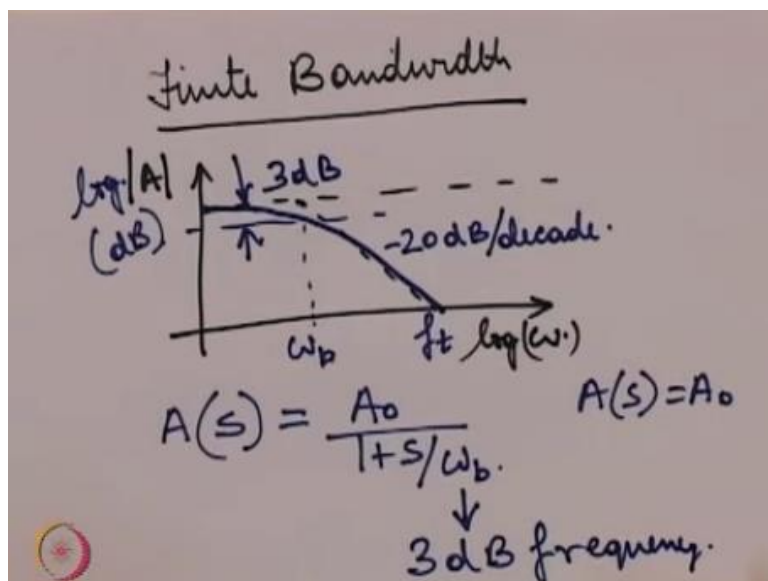 Finite Bandwidth
log|A|
(dB)
3dB
-20dB/decade.
ωb
ft
log(ω)
A(s) = A0 / 1+s/ωb.
A(s)=A0
3dB frequency.